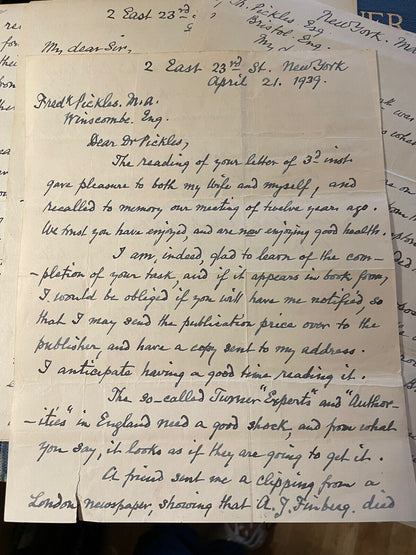 2 East 23rd.
My dear Sir,
. Pickles Esq
Bristol. Eng.
New York.
2 East 23rd St. New York
April 21. 1939.
Fredk Pickles. M.A.
Winscombe. Eng.
Dear Dr Pickles,
The reading of your letter of 3d inst
gave pleasure to both my Wife and myself, and
recalled to memory our meeting of twelve years ago.
We trust you have enjoyed, and are now enjoying good health.
I am, indeed, glad to learn of the com-
-pletion of your task, and if it appears in book form,
I would be obliged if you will have me notified, so
that I may send the publication price over to the
publisher, and have a copy sent to my address.
I anticipate having a good time reading it.
The so-called Turner "Experts" and "Author-
-ities" in England need a good shock, and from what
you say, it looks as if they are going to get it.
A friend sent me a clipping from a
London newspaper, showing that A. J. Finberg. died